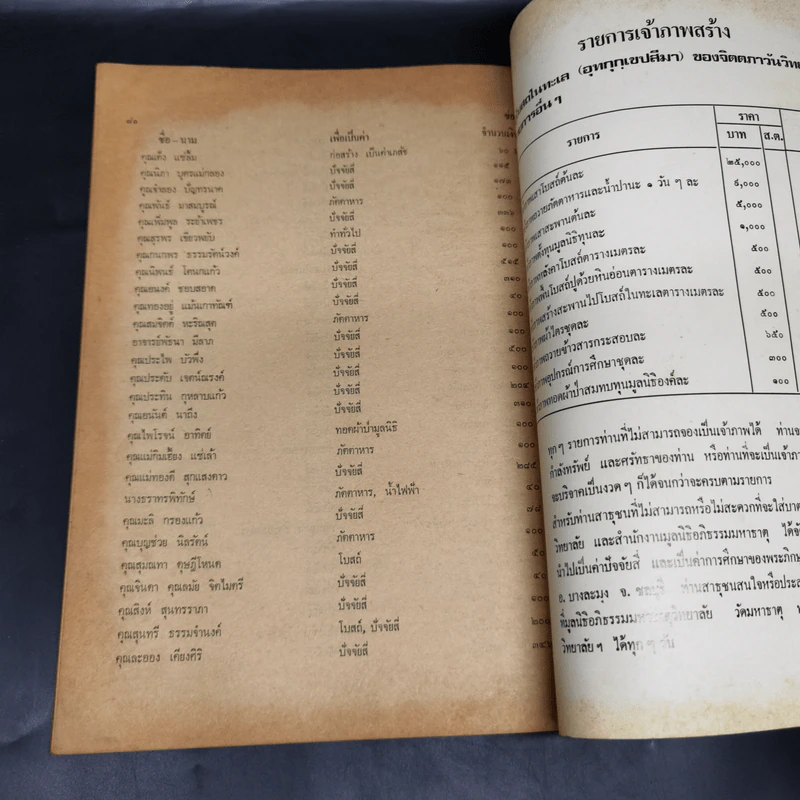 ๙๐
ชื่อ-นาม เพื่อเป็นค่า
คุณเต็ง แซ่ลิ้ม ก่อสร้าง เป็นค่าเภสัช ๖๐
คุณนิภา บุตรแม่กลอง ปัจจัยสี่ ๑๑๕
คุณจำลอง ปัญทรนาค ปัจจัยสี่
คุณพันธ์ มาสมบูรณ์ ภัตตาหาร ๑๐๐
คุณเพิ่มพูล ระย้าเพชร ปัจจัยสี่
คุณสุรพร เขียวพยับ ทำทั่วไป ๑๐๐
คุณกนกพร ธรรมรัตน์วงค์ ปัจจัยสี่ ๕๑๕
คุณนิพนธ์ โตนกแก้ว ปัจจัยสี่ ๓๑๐
คุณอนงค์ ชอบสอาด ปัจจัยสี่ ๔๐
คุณทองอยู่ แม้นเภาทัณฑ์ ปัจจัยสี่ ๑๐๐
คุณสมจิตต์ หะริณสุต ภัตตาหาร ๑๐๐
อาจารย์พัธนา มีลาภ ปัจจัยสี่ ๑๐๐
คุณประไพ บัวพึ่ง ปัจจัยสี่ ๑๐๐
คุณประดับ เจตน์ณรงค์ ปัจจัยสี่ ๒๐๔
คุณประทิน กุหลาบแก้ว ปัจจัยสี่ ๓๑๐
คุณอนันต์ นาถึง ปัจจัยสี่ ๑๐๐
คุณไพโรจน์ อาทิตย์ ทอดผ้าป่ามูลนิธิ ๑๐๐
คุณแม่กิมเฮียง แซ่เล้า ภัตตาหาร ๒๘๕
คุณแม่ทองดี สุกแสงดาว ปัจจัยสี่
นางธราทรพิทักษ์ ภัตตาหาร, น้ำไฟฟ้า
คุณมะลิ กรองแก้ว ปัจจัยสี่ ๑๐๐
คุณบุญช่วย นิลรัตน์ ภัตตาหาร ๑๐๐
คุณสุมณฑา ดุษฎีโหนด โบสถ์
คุณจินดา คุณลมัย จิตไมตรี ปัจจัยสี่ ๔๐
คุณสิงห์ สุนทราภา ปัจจัยสี่ ๑๐๐
คุณสุนทรี ธรรมจำนงค์ โบสถ์, ปัจจัยสี่
คุณละออง เคียงศิริ ปัจจัยสี่ ๓๔๒
รายการเจ้าภาพสร้าง
ในทะเล (อุทกุกฺเขปสีมา) ของจิตตภาวันวิทย
การอื่น ๆ
รายการ ราคา
บาท ส.ต.
เสาโบสถ์ต้นละ ๒๕,๐๐๐
ถวายภัตตาหารและน้ำปานะ ๑ วัน ๆ ละ
เสาสะพานต้นละ ๕,๐๐๐
ตั้งทุนมูลนิธิทุนละ ๑,๐๐๐
หลังคาโบสถ์ตารางเมตรละ ๕๐๐
พื้นโบสถ์ปูด้วยหินอ่อนตารางเมตรละ ๕๐๐
สร้างสะพานไปโบสถ์ในทะเลตารางเมตรละ ๕๐๐
ผ้าไตรชุดละ ๕๐๐
ถวายข้าวสารกระสอบละ ๖๕๐
อุปกรณ์การศึกษาชุดละ ๓๐๐
ทอดผ้าป่าสมทบทุนมูลนิธิองค์ละ ๑๐๐
ทุก ๆ รายการท่านที่ไม่สามารถจองเป็นเจ้าภาพได้ ท่านจ
กำลังทรัพย์ และศรัทธาของท่าน หรือท่านที่จะเป็นเจ้าภา
จะบริจาคเป็นงวด ๆ ก็ได้จนกว่าจะครบตามรายการ
สำหรับท่านสาธุชนที่ไม่สามารถหรือไม่สะดวกที่จะใส่บาต
วิทยาลัย และสำนักงานมูลนิธิอภิธรรมมหาธาตุ ได้จั
นำไปเป็นค่าปัจจัยสี่ และเป็นค่าการศึกษาของพระภิกษ
อ. บางละมุง จ. ชลบุรี ท่านสาธุชนสนใจหรือประส
ที่มูลนิธิอภิธรรมมหาธาตุวิทยาลัย วัดมหาธาตุ
วิทยาลัยฯ ได้ทุก ๆ วัน